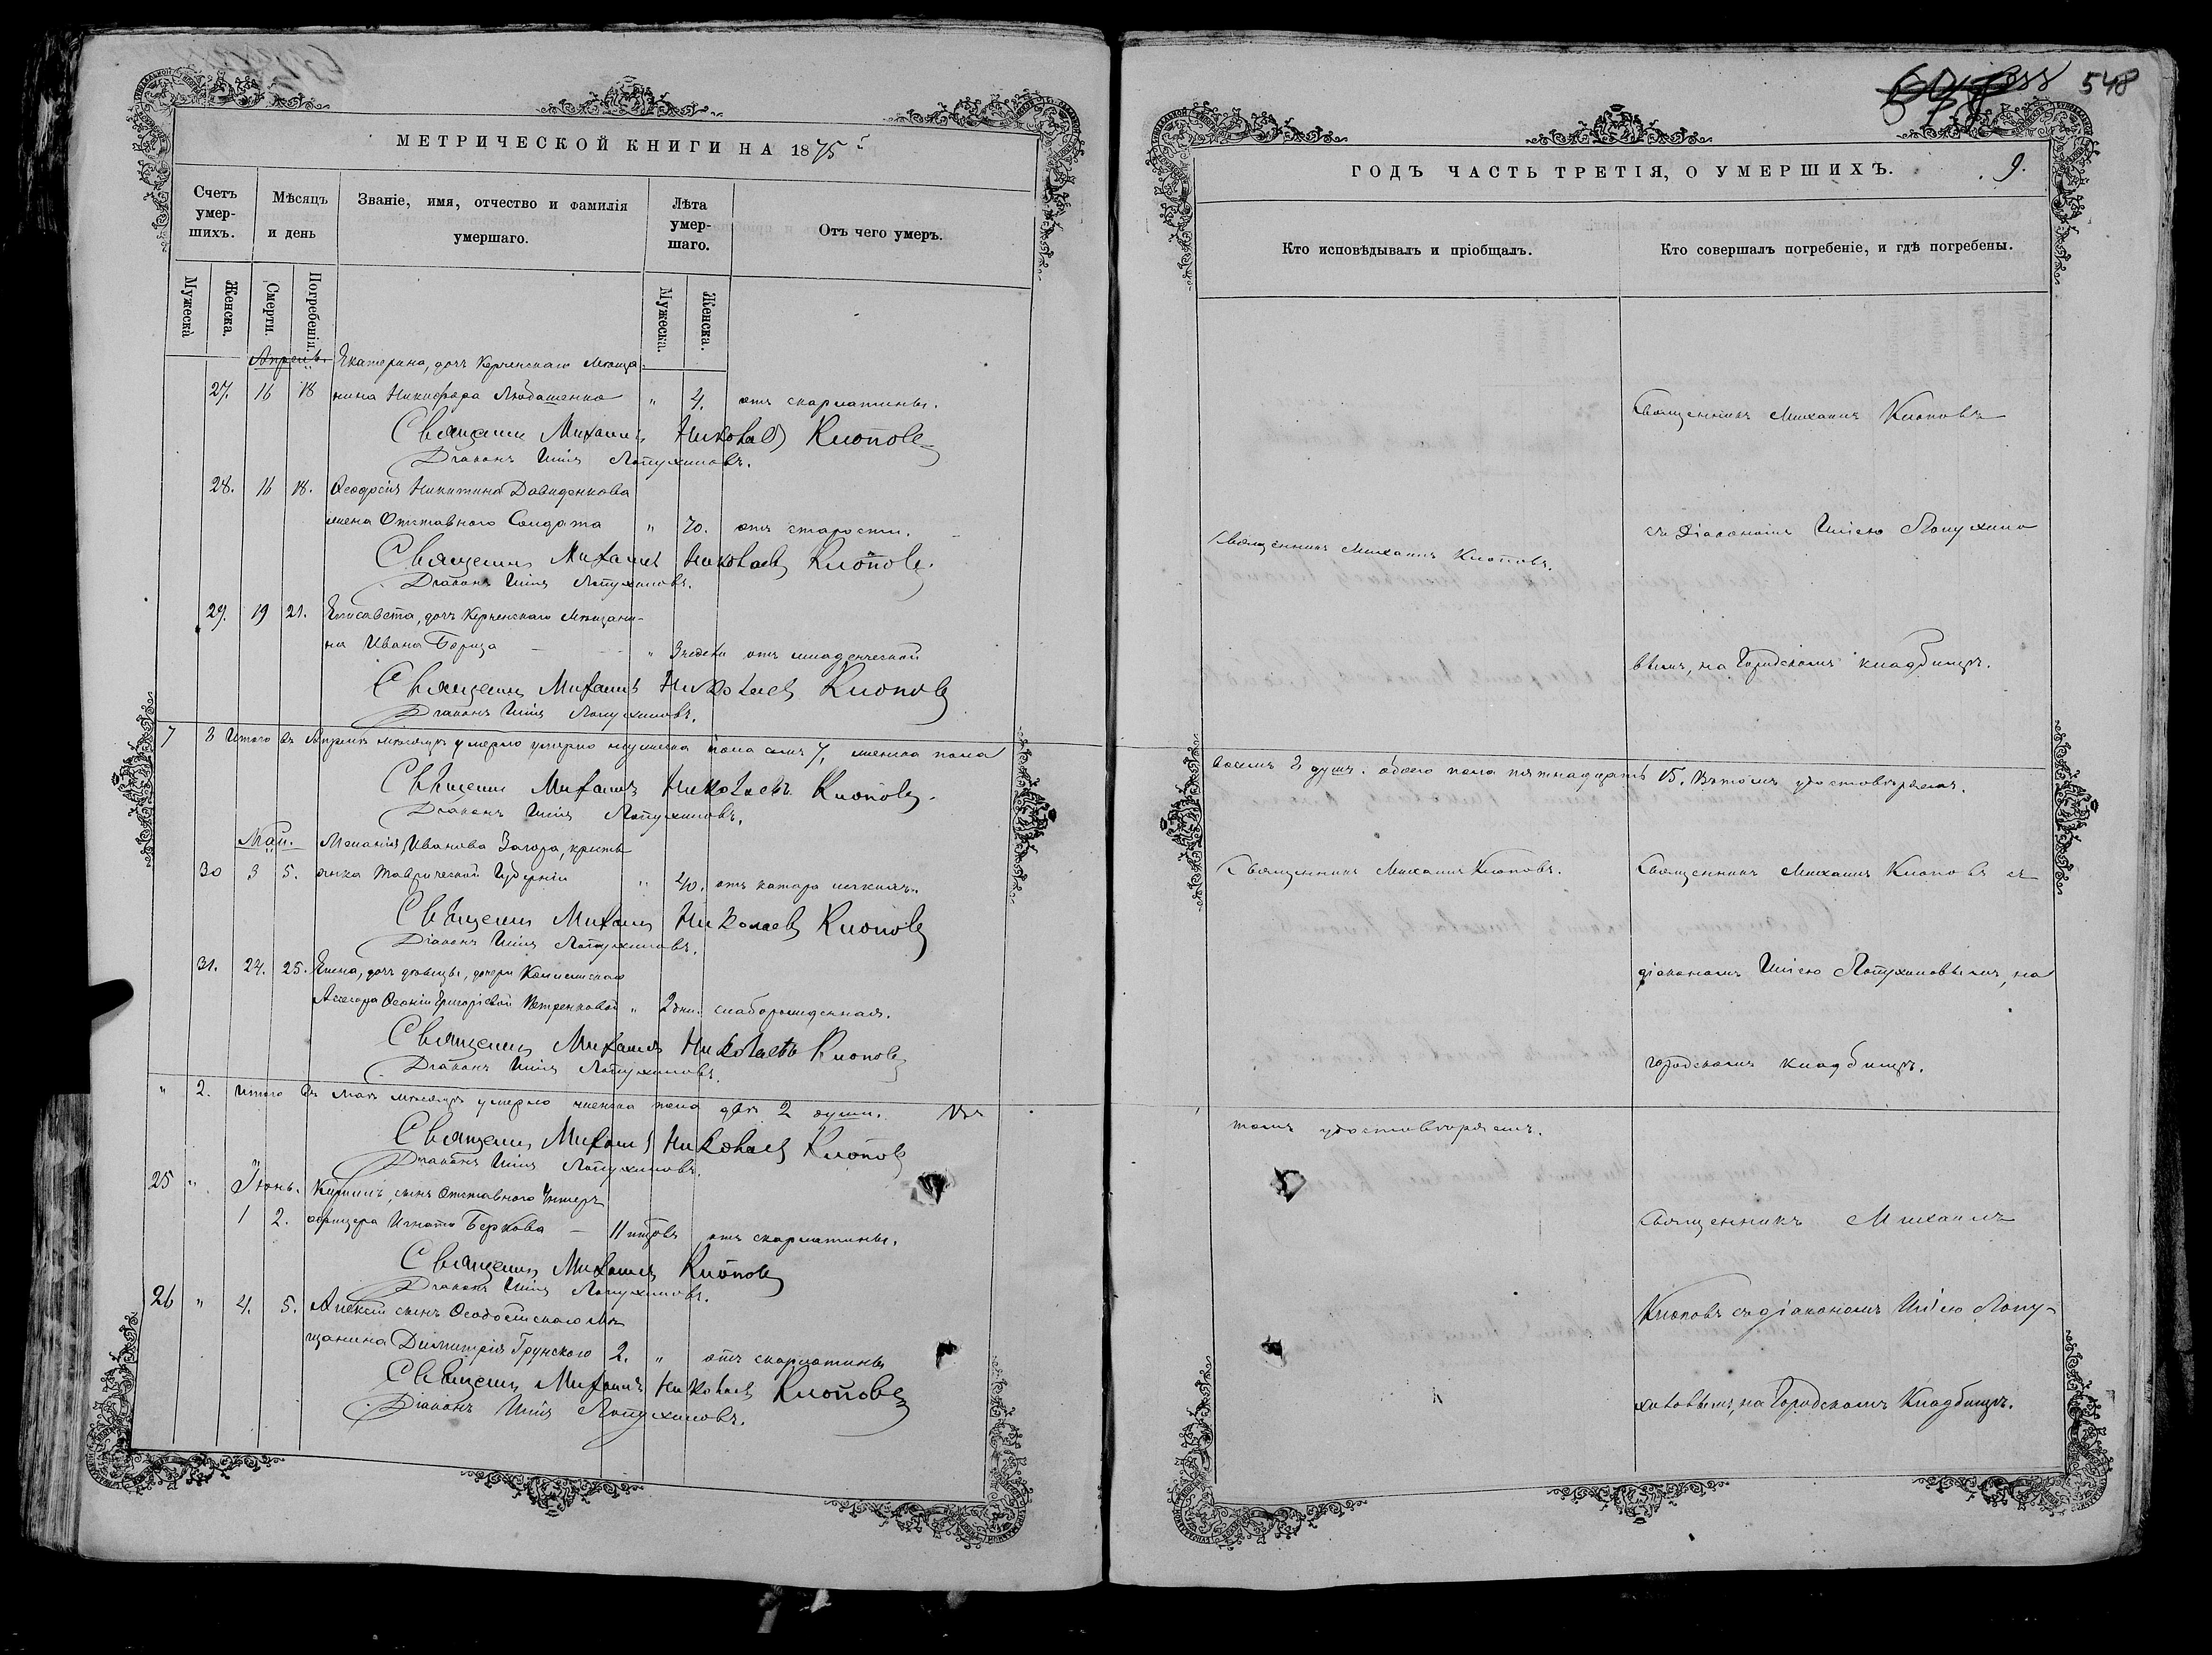 МЕТРИЧЕСКОЙ КНИГИ НА 1875й
Счетъ умер-шихъ.
Мѣсяцъ и день
Званіе, имя, отчество и фамилія умершаго.
Лѣта умер-шаго.
Отъ чего умеръ.
Мужеска
Женска.
Смерти.
Погребенія.
Мужеска.
Женска.
Апрель. Екатерина, дочь Керченскаго мѣща-
27. 16 18 нина Никифора Любашенко " 4. отъ скарлатины.
Священникъ Михаилъ Николаевъ Клоповъ
Діаконъ Илія Лопухиновъ.
28. 16 18. Ѳеодосія Никитина Давиденкова
жена Отставного Солдата " 70. отъ старости.
Священникъ Михаилъ Николаевъ Клоповъ.
Діаконъ Илія Лопухиновъ.
29. 19 21. Елисавета, дочь Керченскаго Мѣщани-
на Ивана " 3 недѣли отъ младенческой
Священникъ Михаилъ Николаевъ Клоповъ
Діаконъ Илія Лопухиновъ.
7 8 Итого въ Апрелѣ мѣсяцѣ умерло умерло мужеска пола семь 7, женска пола
Священникъ Михаилъ Николаевъ Клоповъ.
Діаконъ Илія Лопухиновъ.
Май. Меланія Иванова Загора, кресть
30 3 5. янка Таврической Губерніи " 40. отъ катара легкихъ.
Священникъ Михаилъ Николаевъ Клоповъ
Діаконъ Илія Лопухиновъ.
31. 24. 25. Елена, дочь дѣвицы, дочери Колежскаго
Асесора Григоріевой " 2 дни. слаборожденная.
Священникъ Михаилъ Николаевъ Клоповъ
Діаконъ Илія Лопухиновъ.
" 2. Итого въ Маѣ мѣсяцѣ умерло женска пола двѣ 2 души. Въ
Священникъ Михаилъ Николаевъ Клоповъ
Діаконъ Илія Лопухиновъ.
25 " Іюнь. Кириллъ, сынъ Отставного Унтеръ
1 2. офицера Игнатія Беркова 11 отъ скарлатины.
Священникъ Михаилъ Клоповъ
Діаконъ Илія Лопухиновъ.
26 " 4. 5. Алексѣй сынъ Ѳеодосійскаго мѣ
щанина Димитрія Грунскаго 2. " отъ скарлатины
Священникъ Михаилъ Николаевъ Клоповъ
Діаконъ Илія Лопухиновъ.
548
ГОДЪ ЧАСТЬ ТРЕТІЯ, О УМЕРШИХЪ. 9.
Кто исповѣдывалъ и пріобщалъ.
Кто совершалъ погребеніе, и гдѣ погребены.
Священникъ Михаилъ Клоповъ
съ Діакономъ Иліею Лопухино
Священникъ Михаилъ Клоповъ.
вымъ, на Городскомъ кладбищѣ.
восемь 8 душъ. обоего пола пятнадцать 15. Въ томъ удостовѣряемъ.
Священникъ Михаилъ Клоповъ.
Священникъ Михаилъ Клоповъ съ
діакономъ Иліею Лопухиновымъ, на
городскомъ кладбищѣ.
томъ удостовѣряемъ.
Священникъ Михаилъ
Клоповъ съ діакономъ Иліею Лопу-
хиновымъ, на Городскомъ Кладбищѣ.